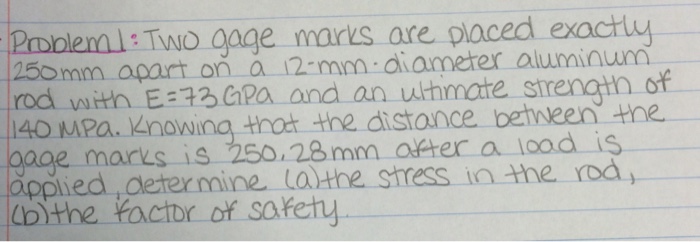 Problem 1: Two gage marks are placed exactly
250mm apart on a 12-mm-diameter aluminum
rod with E=73 GPa and an ultimate strength of
140 MPa. Knowing that the distance between the
gage marks is 250.28mm after a load is
applied, determine (a) the stress in the rod,
(b) the factor of safety.